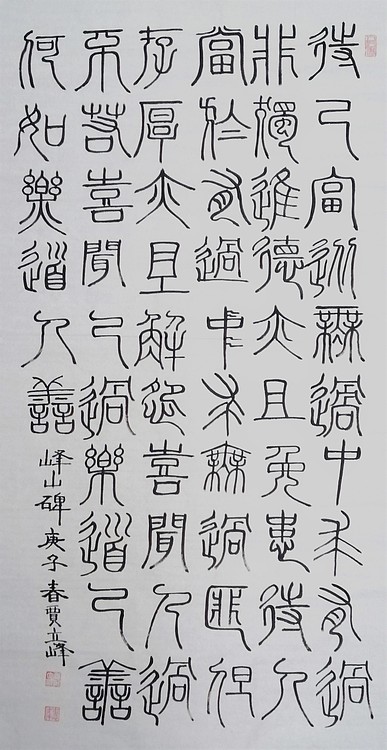 待己當從無過中求有過
非獨進德亦且免患待人
當於有過中求無過匪但
存厚亦且解怨喜聞人過
不若喜聞己過樂道己善
何如樂道人善
峄山碑 庚子春賈立峰